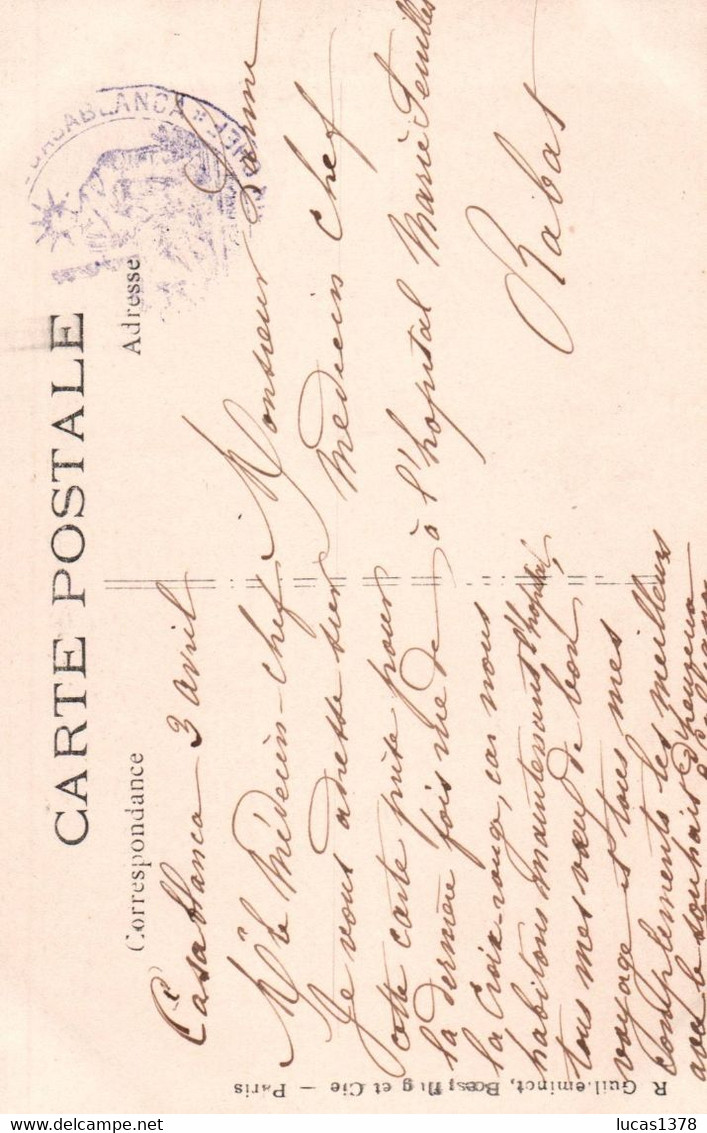 CARTE POSTALE
Correspondance
Adresse
CASABLANCA * CHEF
Casablanca 3 avril
Mr le Médecin-chef
Je vous adresse
cette carte prise pour
la dernière fois
la Croix-rouge, car nous
habitons maintenant l'hopital,
tous mes vœux de bon
voyage et tous mes
complements les meilleurs
avec le souhait d'heureux
Monsieur
Médecin Chef
à l'hopital Marie Feuillet
Rabat
R. Guilleminot, Bœspflug et Cie — Paris
delcampe.net
lucas1378